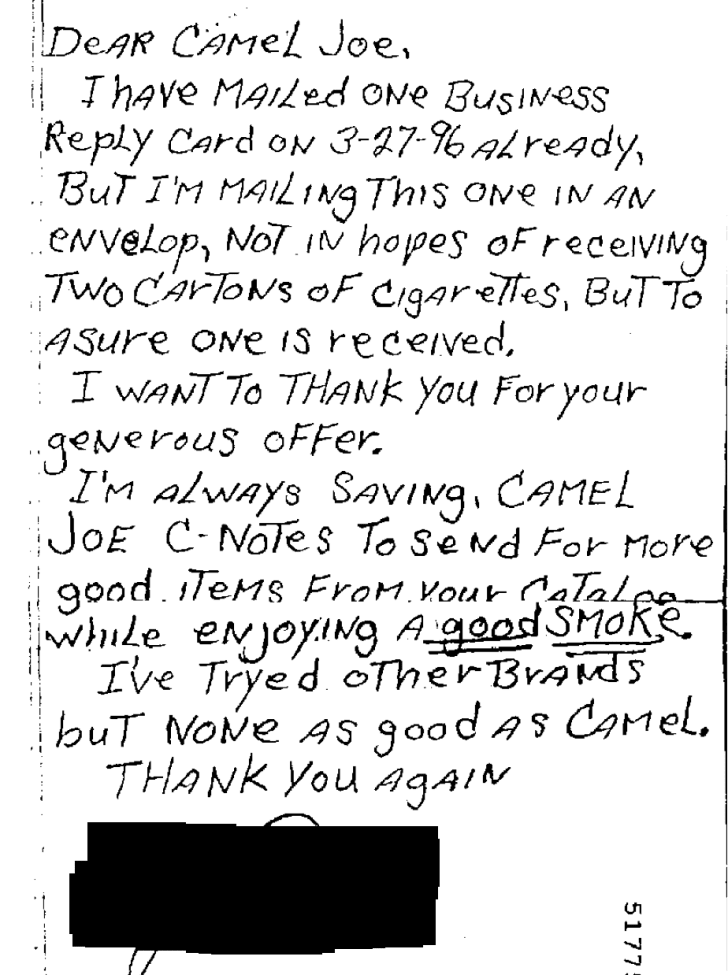 Dear Camel Joe,
I have mailed one Business
Reply Card on 3-27-96 already,
But I'm mailing This one in an
envelop, not in hopes of receiving
Two Cartons of cigarettes, But To
asure one is received.
I want To Thank you For your
generous offer.
I'm always saving, CAMEL
JOE C-Notes To send For more
good items From your Catalog
while enjoying a good smoke.
I've Tryed other Brands
but none as good as Camel.
Thank you again
5177